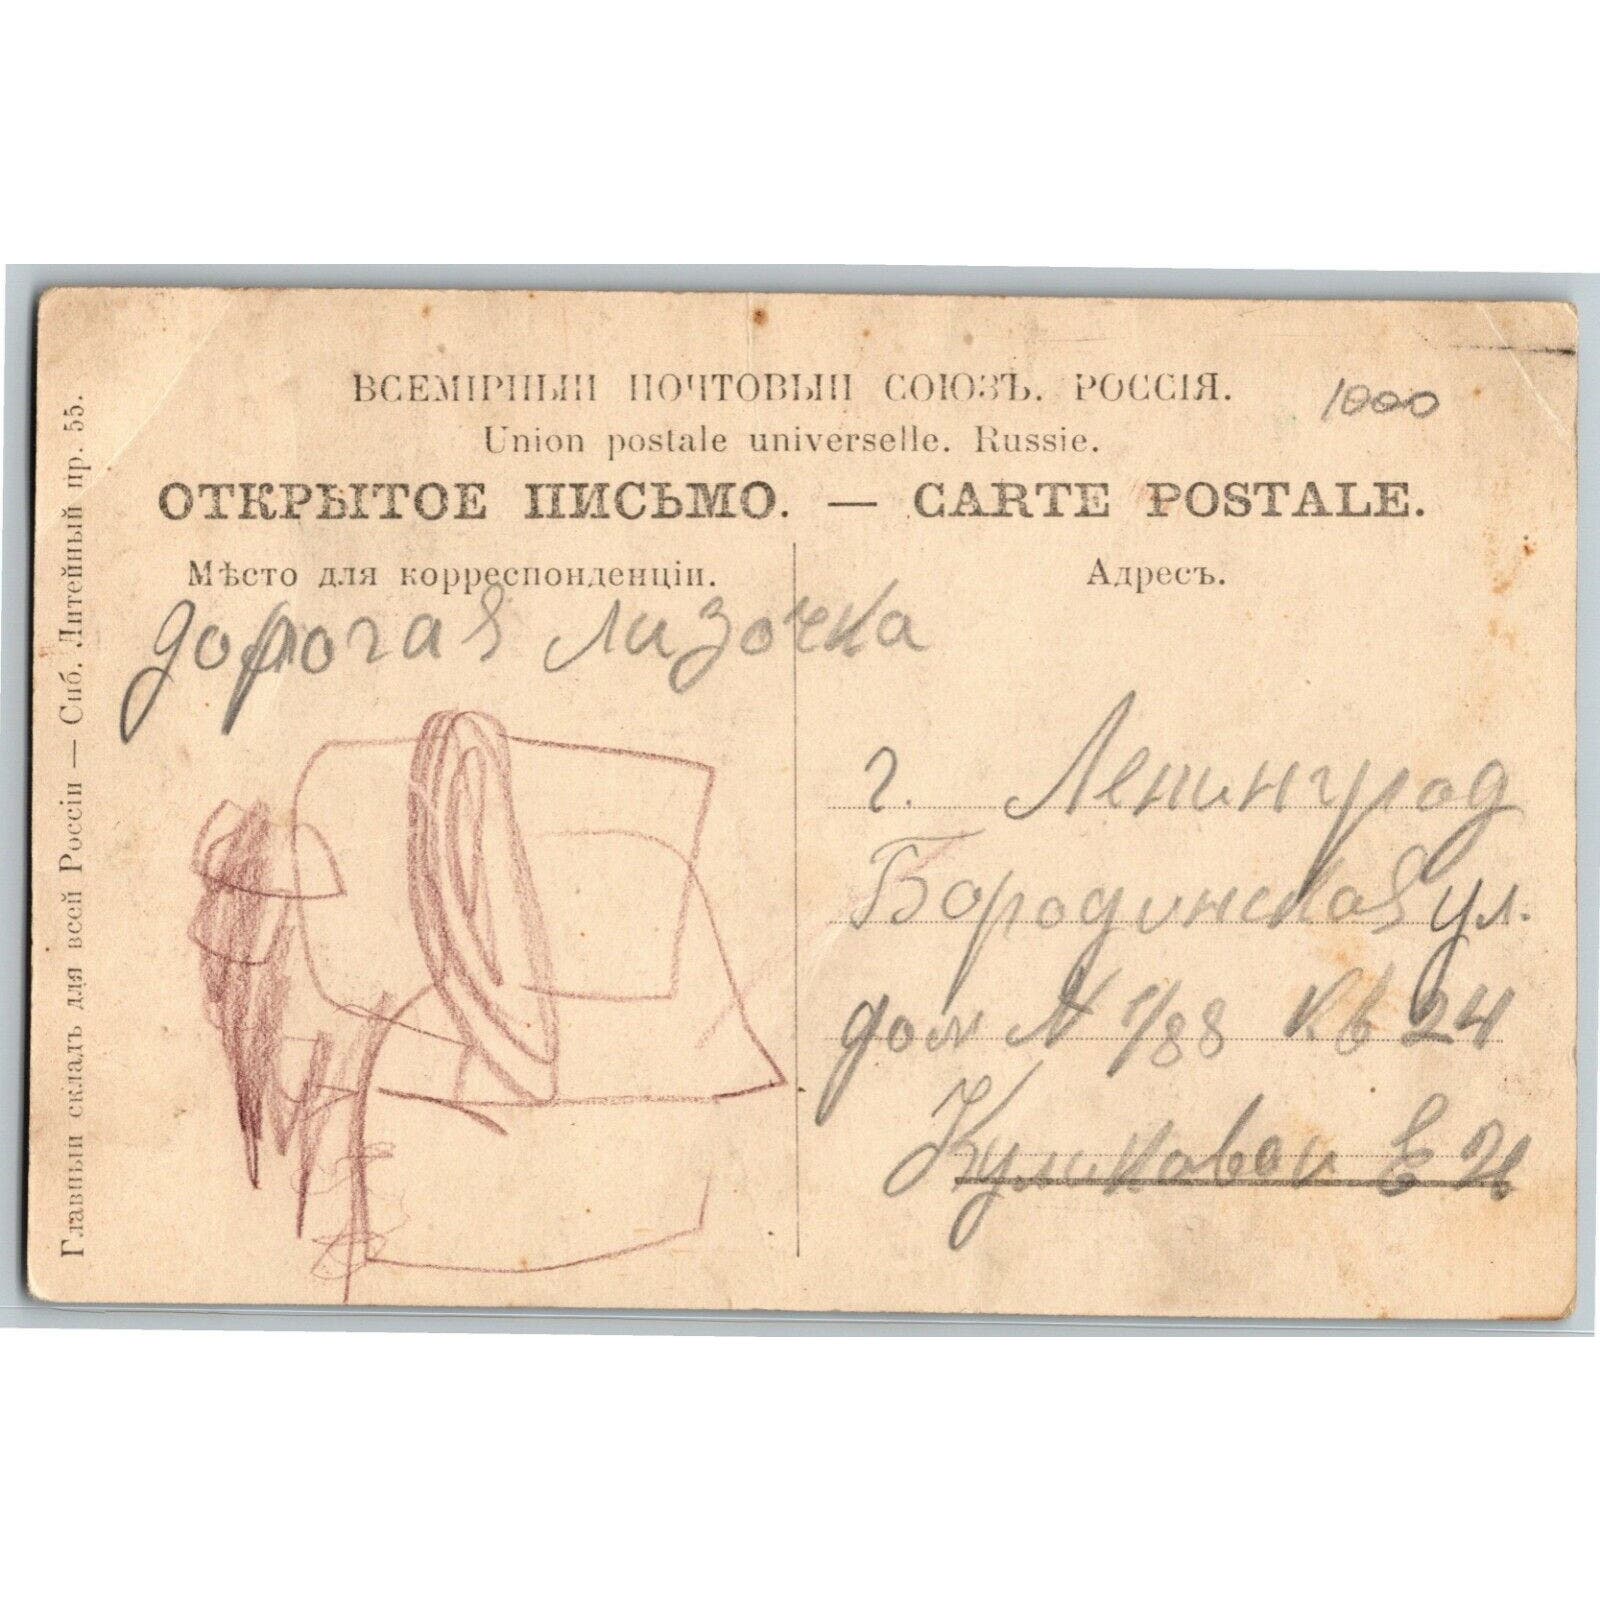 ВСЕМІРНЫЙ ПОЧТОВЫЙ СОЮЗЪ. РОССІЯ.
1000
Union postale universelle. Russie.
ОТКРЫТОЕ ПИСЬМО. — CARTE POSTALE.
Мѣсто для корреспонденціи.
Адресъ.
дорогая Лизочка
г. Ленинград
Бородинская ул.
дом N 1/88 кв 24
Куликовой Е И
Главный складъ для всей Россіи — Спб. Литейный пр. 55.